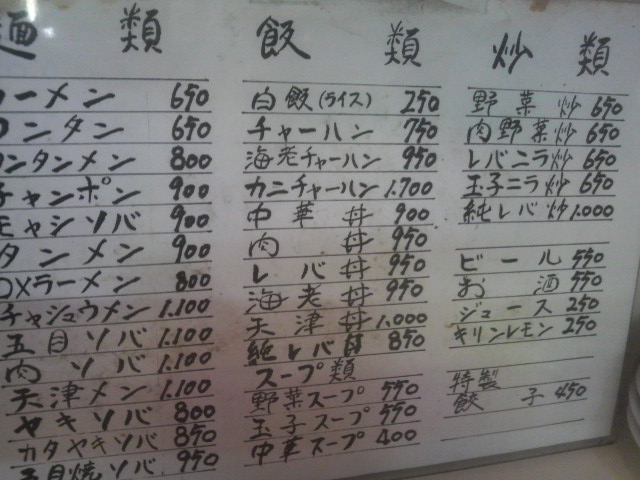 麺 類
ラーメン 650
ワンタン 650
ワンタンメン 800
チャンポン 900
モヤシソバ 900
タンメン 900
メラーメン 800
チャシュウメン 1.100
五目ソバ 1.100
肉ソバ 1.100
天津メン 1.100
ヤキソバ 800
カタヤキソバ 850
五目焼ソバ 950
飯 類
白飯(ライス) 250
チャーハン 750
海老チャーハン 950
カニチャーハン 1.700
中華丼 900
肉丼 950
レバ丼 950
海老丼 950
天津丼 1.000
純レバ丼 850
スープ類
野菜スープ 550
玉子スープ 550
中華スープ 400
炒 類
野菜炒 650
肉野菜炒 650
レバニラ炒 650
玉子ニラ炒 650
純レバ炒 1.000
ビール 550
お酒 550
ジュース 250
キリンレモン 250
特製
餃子 450